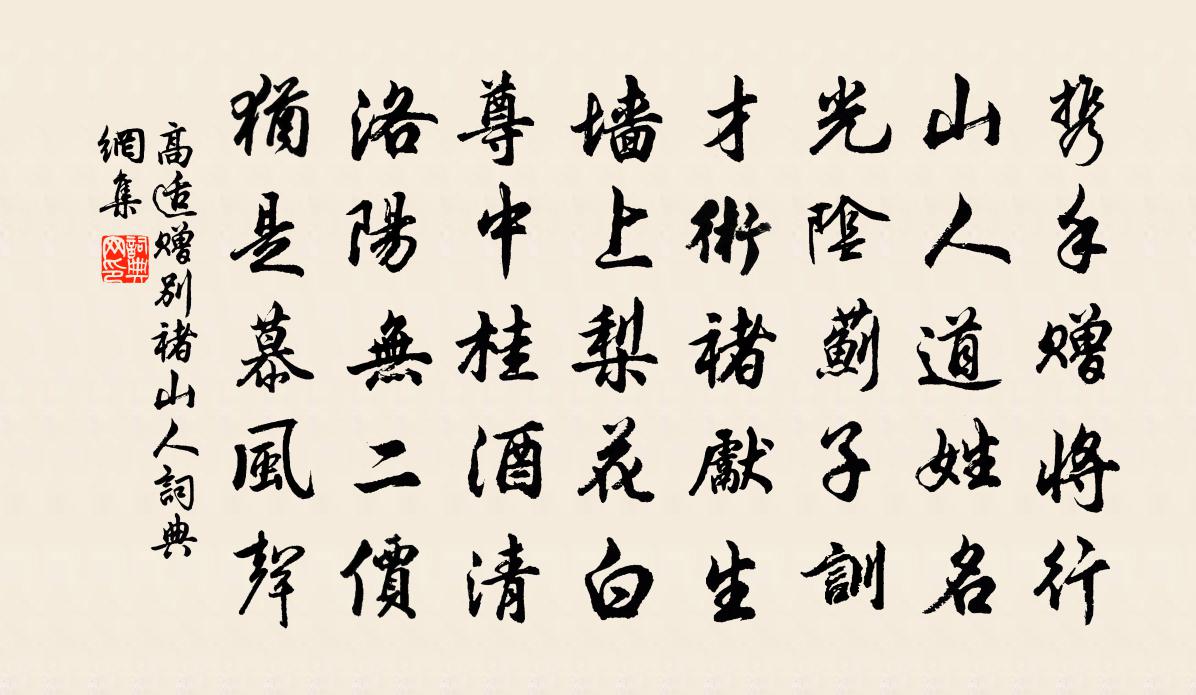 携手赠將行
山人道姓名
光陰薊子訓
才術褚獻生
墻上梨花白
尊中桂酒清
洛陽無二價
猶是慕風聲
高适赠别褚山人詞典
網集
詞典网印